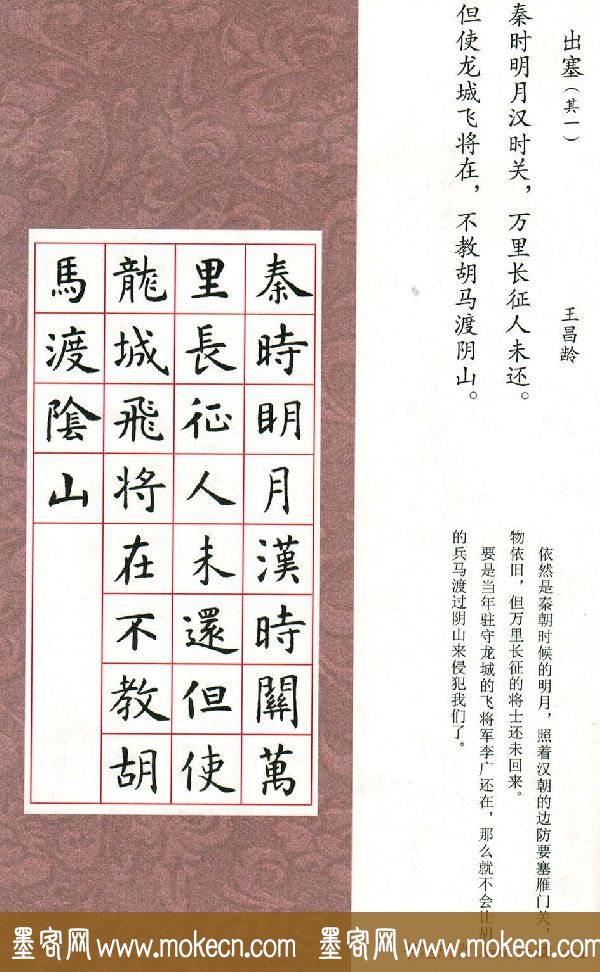 出塞（其一）
王昌龄
秦时明月汉时关，万里长征人未还。
但使龙城飞将在，不教胡马渡阴山。
依然是秦朝时候的明月，照着汉朝的边防要塞雁门关，
物依旧，但万里长征的将士还未回来。
要是当年驻守龙城的飞将军李广还在，那么就不会让胡
的兵马渡过阴山来侵犯我们了。
秦時明月漢時關萬
里長征人未還但使
龍城飛将在不教胡
馬渡陰山
墨客网 www.mokecn.com 墨客网 www.mokecn.com